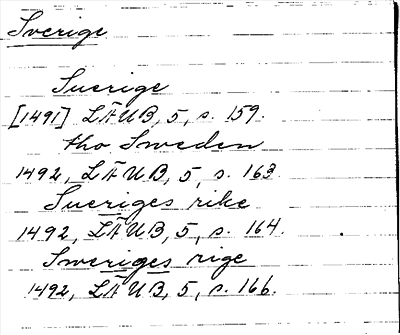 Sverige
Suerige
[1491] LÄUB, 5, s. 159.
tho Sweden
1492, LÄUB, 5, s. 163.
Sueriges rike
1492, LÄUB, 5, s. 164.
Sweriges rige
1492, LÄUB, 5, s. 166.